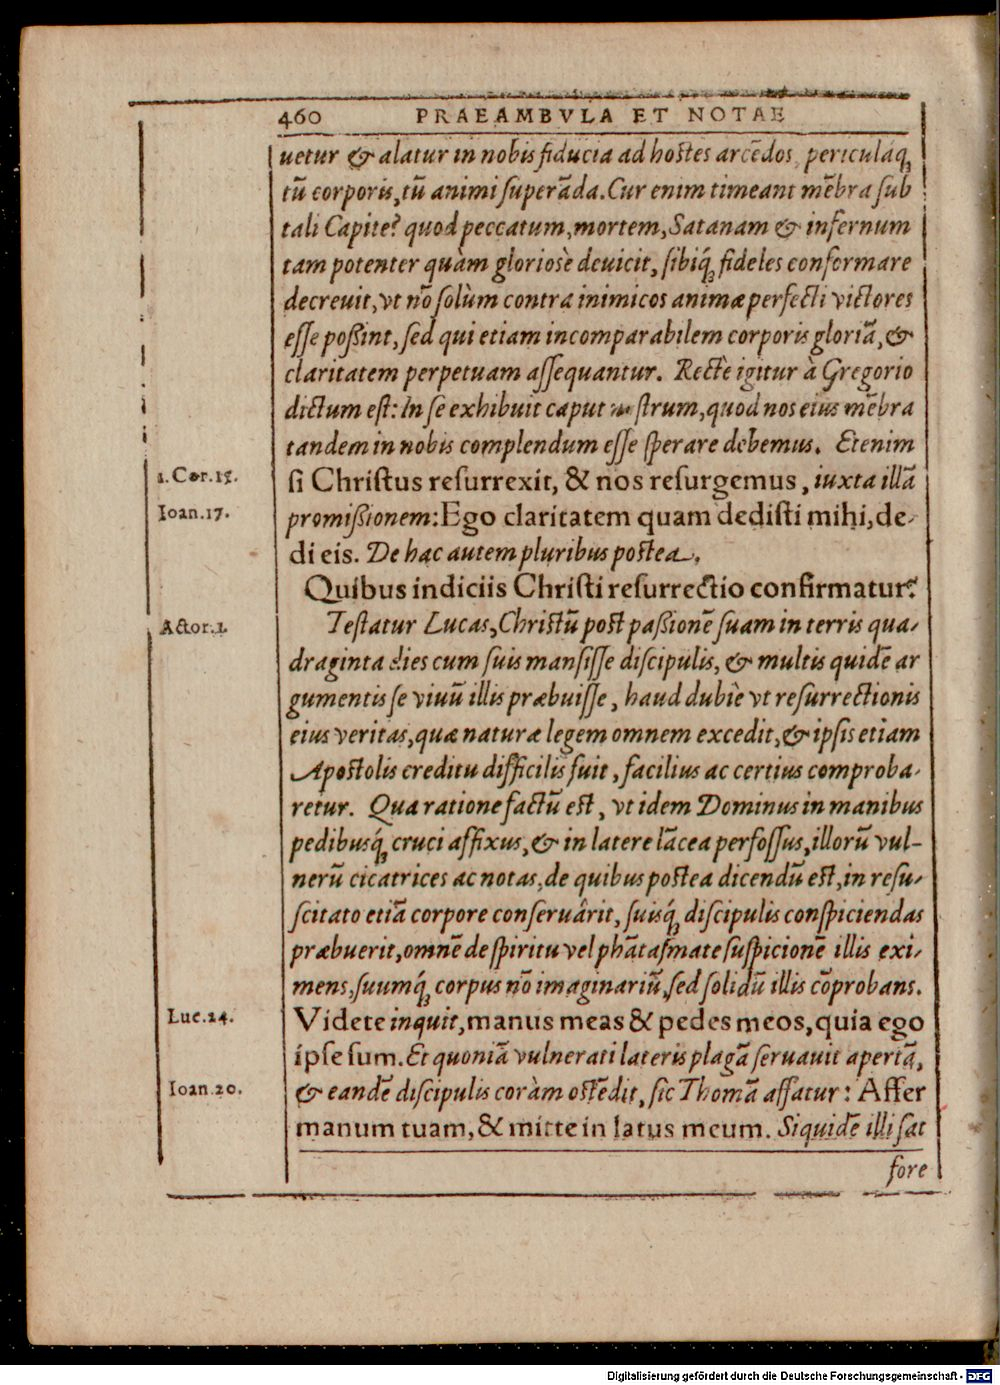 460 PRAEAMBVLA ET NOTAE
uetur & alatur in nobis fiducia ad hostes arcēdos, periculaq́;
tū corporis, tū animi superāda. Cur enim timeant mēbra sub
tali Capite? quod peccatum, mortem, Satanam & infernum
tam potenter quàm gloriosè deuicit, sibiq́; fideles conformare
decreuit, vt nō solùm contra inimicos animæ perfecti victores
esse possint, sed qui etiam incomparabilem corporis gloriā, &
claritatem perpetuam assequantur. Rectè igitur à Gregorio
dictum est: In se exhibuit caput nostrum, quod nos eius mēbra
tandem in nobis complendum esse sperare debemus. Etenim
1. Cor. 15. si Christus resurrexit, & nos resurgemus, iuxta illā
Ioan. 17. promissionem: Ego claritatem quam dedisti mihi, de-
di eis. De hac autem pluribus postea.
Quibus indiciis Christi resurrectio confirmatur?
Actor. 1. Testatur Lucas, Christū post passionē suam in terris qua-
draginta dies cum suis mansisse discipulis, & multis quidē ar
gumentis se viuū illis præbuisse, haud dubiè vt resurrectionis
eius veritas, quæ naturæ legem omnem excedit, & ipsis etiam
Apostolis creditu difficilis fuit, facilius ac certius comproba-
retur. Qua ratione factū est, vt idem Dominus in manibus
pedibusq́; cruci affixus, & in latere lācea perfossus, illorū vul-
nerū cicatrices ac notas, de quibus postea dicendū est, in resu-
scitato etiā corpore conseruârit, suisq́; discipulis conspiciendas
præbuerit, omnē de spiritu vel phātasmate suspicionē illis exi-
mens, suumq́; corpus nō imaginariū, sed solidū illis cōprobans.
Luc. 24. Videte inquit, manus meas & pedes meos, quia ego
ipse sum. Et quoniā vulnerati lateris plagā seruauit apertā,
Ioan. 20. & eandē discipulis coràm ostēdit, sic Thomā affatur: Affer
manum tuam, & mitte in latus meum. Siquidē illi sat
fore
Digitalisierung gefördert durch die Deutsche Forschungsgemeinschaft - DFG